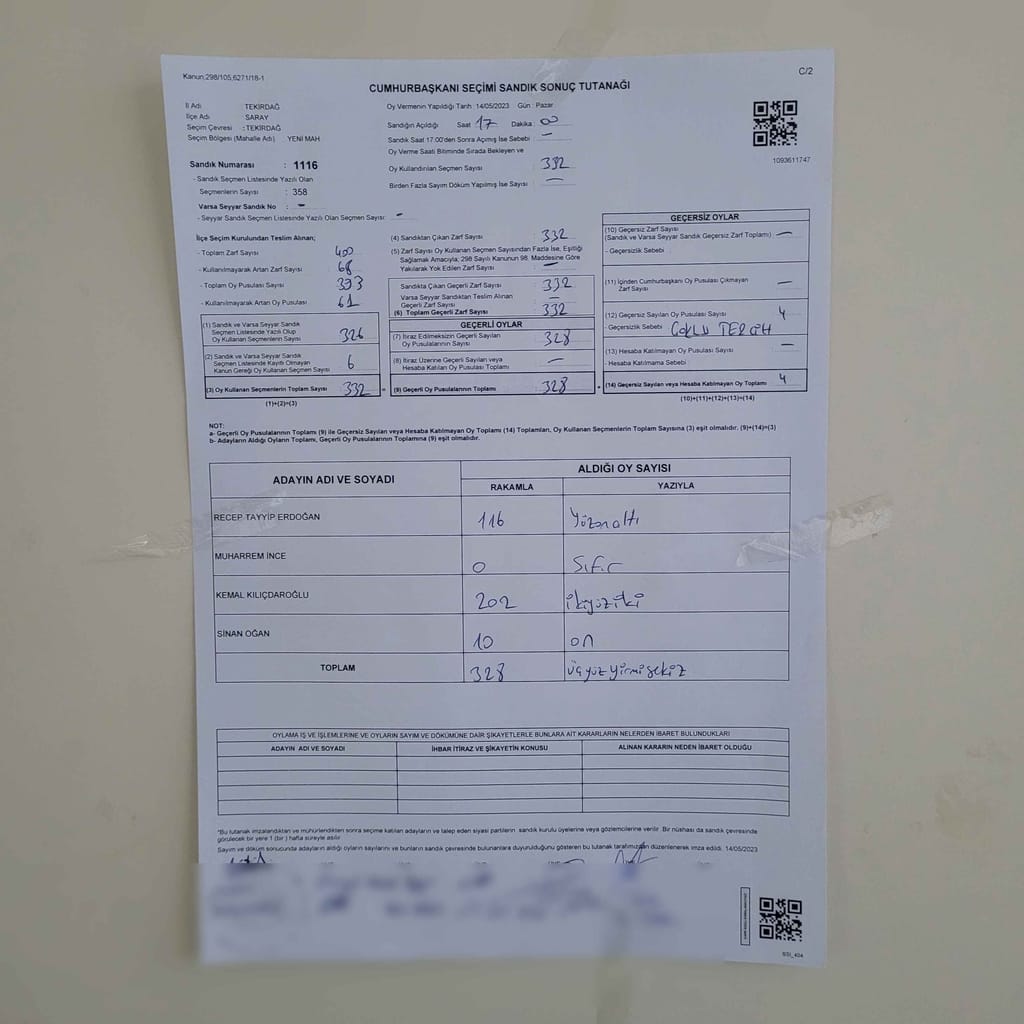 Kanun;298/105,6271/18-1
C/2
CUMHURBAŞKANI SEÇİMİ SANDIK SONUÇ TUTANAĞI
İl Adı : TEKİRDAĞ
İlçe Adı : SARAY
Seçim Çevresi : TEKİRDAĞ
Seçim Bölgesi (Mahalle Adı) : YENİ MAH
Sandık Numarası : 1116
- Sandık Seçmen Listesinde Yazılı Olan
Seçmenlerin Sayısı : 358
Varsa Seyyar Sandık No : -
- Seyyar Sandık Seçmen Listesinde Yazılı Olan Seçmen Sayısı : -
Oy Vermenin Yapıldığı Tarih : 14/05/2023 Gün : Pazar
Sandığın Açıldığı Saat 17 Dakika : 00
Sandık Saat 17.00'den Sonra Açılmış İse Sebebi : -
Oy Verme Saati Bitiminde Sırada Bekleyen ve
Oy Kullandırılan Seçmen Sayısı : 332
Birden Fazla Sayım Döküm Yapılmış İse Sayısı : -
1093611747
İlçe Seçim Kurulundan Teslim Alınan;
- Toplam Zarf Sayısı : 400
- Kullanılmayarak Artan Zarf Sayısı : 68
- Toplam Oy Pusulası Sayısı : 393
- Kullanılmayarak Artan Oy Pusulası : 61
(1) Sandık ve Varsa Seyyar Sandık
Seçmen Listesinde Yazılı Olup
Oy Kullanan Seçmenlerin Sayısı 326
(2) Sandık ve Varsa Seyyar Sandık
Seçmen Listesinde Kayıtlı Olmayan
Kanun Gereği Oy Kullanan Seçmen Sayısı 6
(3) Oy Kullanan Seçmenlerin Toplam Sayısı 332 =
(1)+(2)=(3)
(4) Sandıktan Çıkan Zarf Sayısı : 332
(5) Zarf Sayısı Oy Kullanan Seçmen Sayısından Fazla İse, Eşitliği
Sağlamak Amacıyla; 298 Sayılı Kanunun 98. Maddesine Göre
Yakılarak Yok Edilen Zarf Sayısı : -
Sandıkta Çıkan Geçerli Zarf Sayısı : 332
Varsa Seyyar Sandıktan Teslim Alınan
Geçerli Zarf Sayısı : -
(6) Toplam Geçerli Zarf Sayısı : 332
GEÇERLİ OYLAR
(7) İtiraz Edilmeksizin Geçerli Sayılan
Oy Pusulasının Sayısı : 328
(8) İtiraz Üzerine Geçerli Sayılan veya
Hesaba Katılan Oy Pusulası Toplamı : -
(9) Geçerli Oy Pusulalarının Toplamı : 328 +
GEÇERSİZ OYLAR
(10) Geçersiz Zarf Sayısı
(Sandık ve Varsa Seyyar Sandık Geçersiz Zarf Toplamı) : -
- Geçersizlik Sebebi :
(11) İçinden Cumhurbaşkanı Oy Pusulası Çıkmayan
Zarf Sayısı : -
(12) Geçersiz Sayılan Oy Pusulası Sayısı : 4
- Geçersizlik Sebebi : ÇOKLU TERCİH
(13) Hesaba Katılmayan Oy Pusulası Sayısı : -
- Hesaba Katılmama Sebebi :
(14) Geçersiz Sayılan veya Hesaba Katılmayan Oy Toplamı : 4
(10)+(11)+(12)+(13)=(14)
NOT:
a- Geçerli Oy Pusulalarının Toplamı (9) ile Geçersiz Sayılan veya Hesaba Katılmayan Oy Toplamı (14) Toplamları, Oy Kullanan Seçmenlerin Toplam Sayısına (3) eşit olmalıdır. (9)+(14)=(3)
b- Adayların Aldığı Oyların Toplamı, Geçerli Oy Pusulalarının Toplamına (9) eşit olmalıdır.
ADAYIN ADI VE SOYADI
ALDIĞI OY SAYISI
RAKAMLA YAZIYLA
RECEP TAYYİP ERDOĞAN 116 Yüzonaltı
MUHARREM İNCE 0 Sıfır
KEMAL KILIÇDAROĞLU 202 ikiyüziki
SİNAN OĞAN 10 on
TOPLAM 328 üçyüzyirmisekiz
OYLAMA İŞ VE İŞLEMLERİNE VE OYLARIN SAYIM VE DÖKÜMÜNE DAİR ŞİKAYETLERLE BUNLARA AİT KARARLARIN NELERDEN İBARET BULUNDUKLARI
ADAYIN ADI VE SOYADI İHBAR İTİRAZ VE ŞİKAYETİN KONUSU ALINAN KARARIN NEDEN İBARET OLDUĞU
*Bu tutanak imzalandıktan ve mühürlendikten sonra seçime katılan adayların ve talep eden siyasi partilerin sandık kurulu üyelerine veya gözlemcilerine verilir. Bir nüshası da sandık çevresinde
görülecek bir yere 1 (bir) hafta süreyle asılır.
Sayım ve döküm sonucunda adayların aldığı oyların sayılarını ve bunların sandık çevresinde bulunanlara duyurulduğunu gösteren bu tutanak tarafımızdan düzenlenerek imza edildi. 14/05/2023
SSI_404